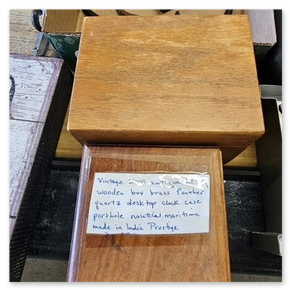 Vintage
wooden box brass Panther
quartz desktop clock case
porthole nautical maritime
made in India Prestige